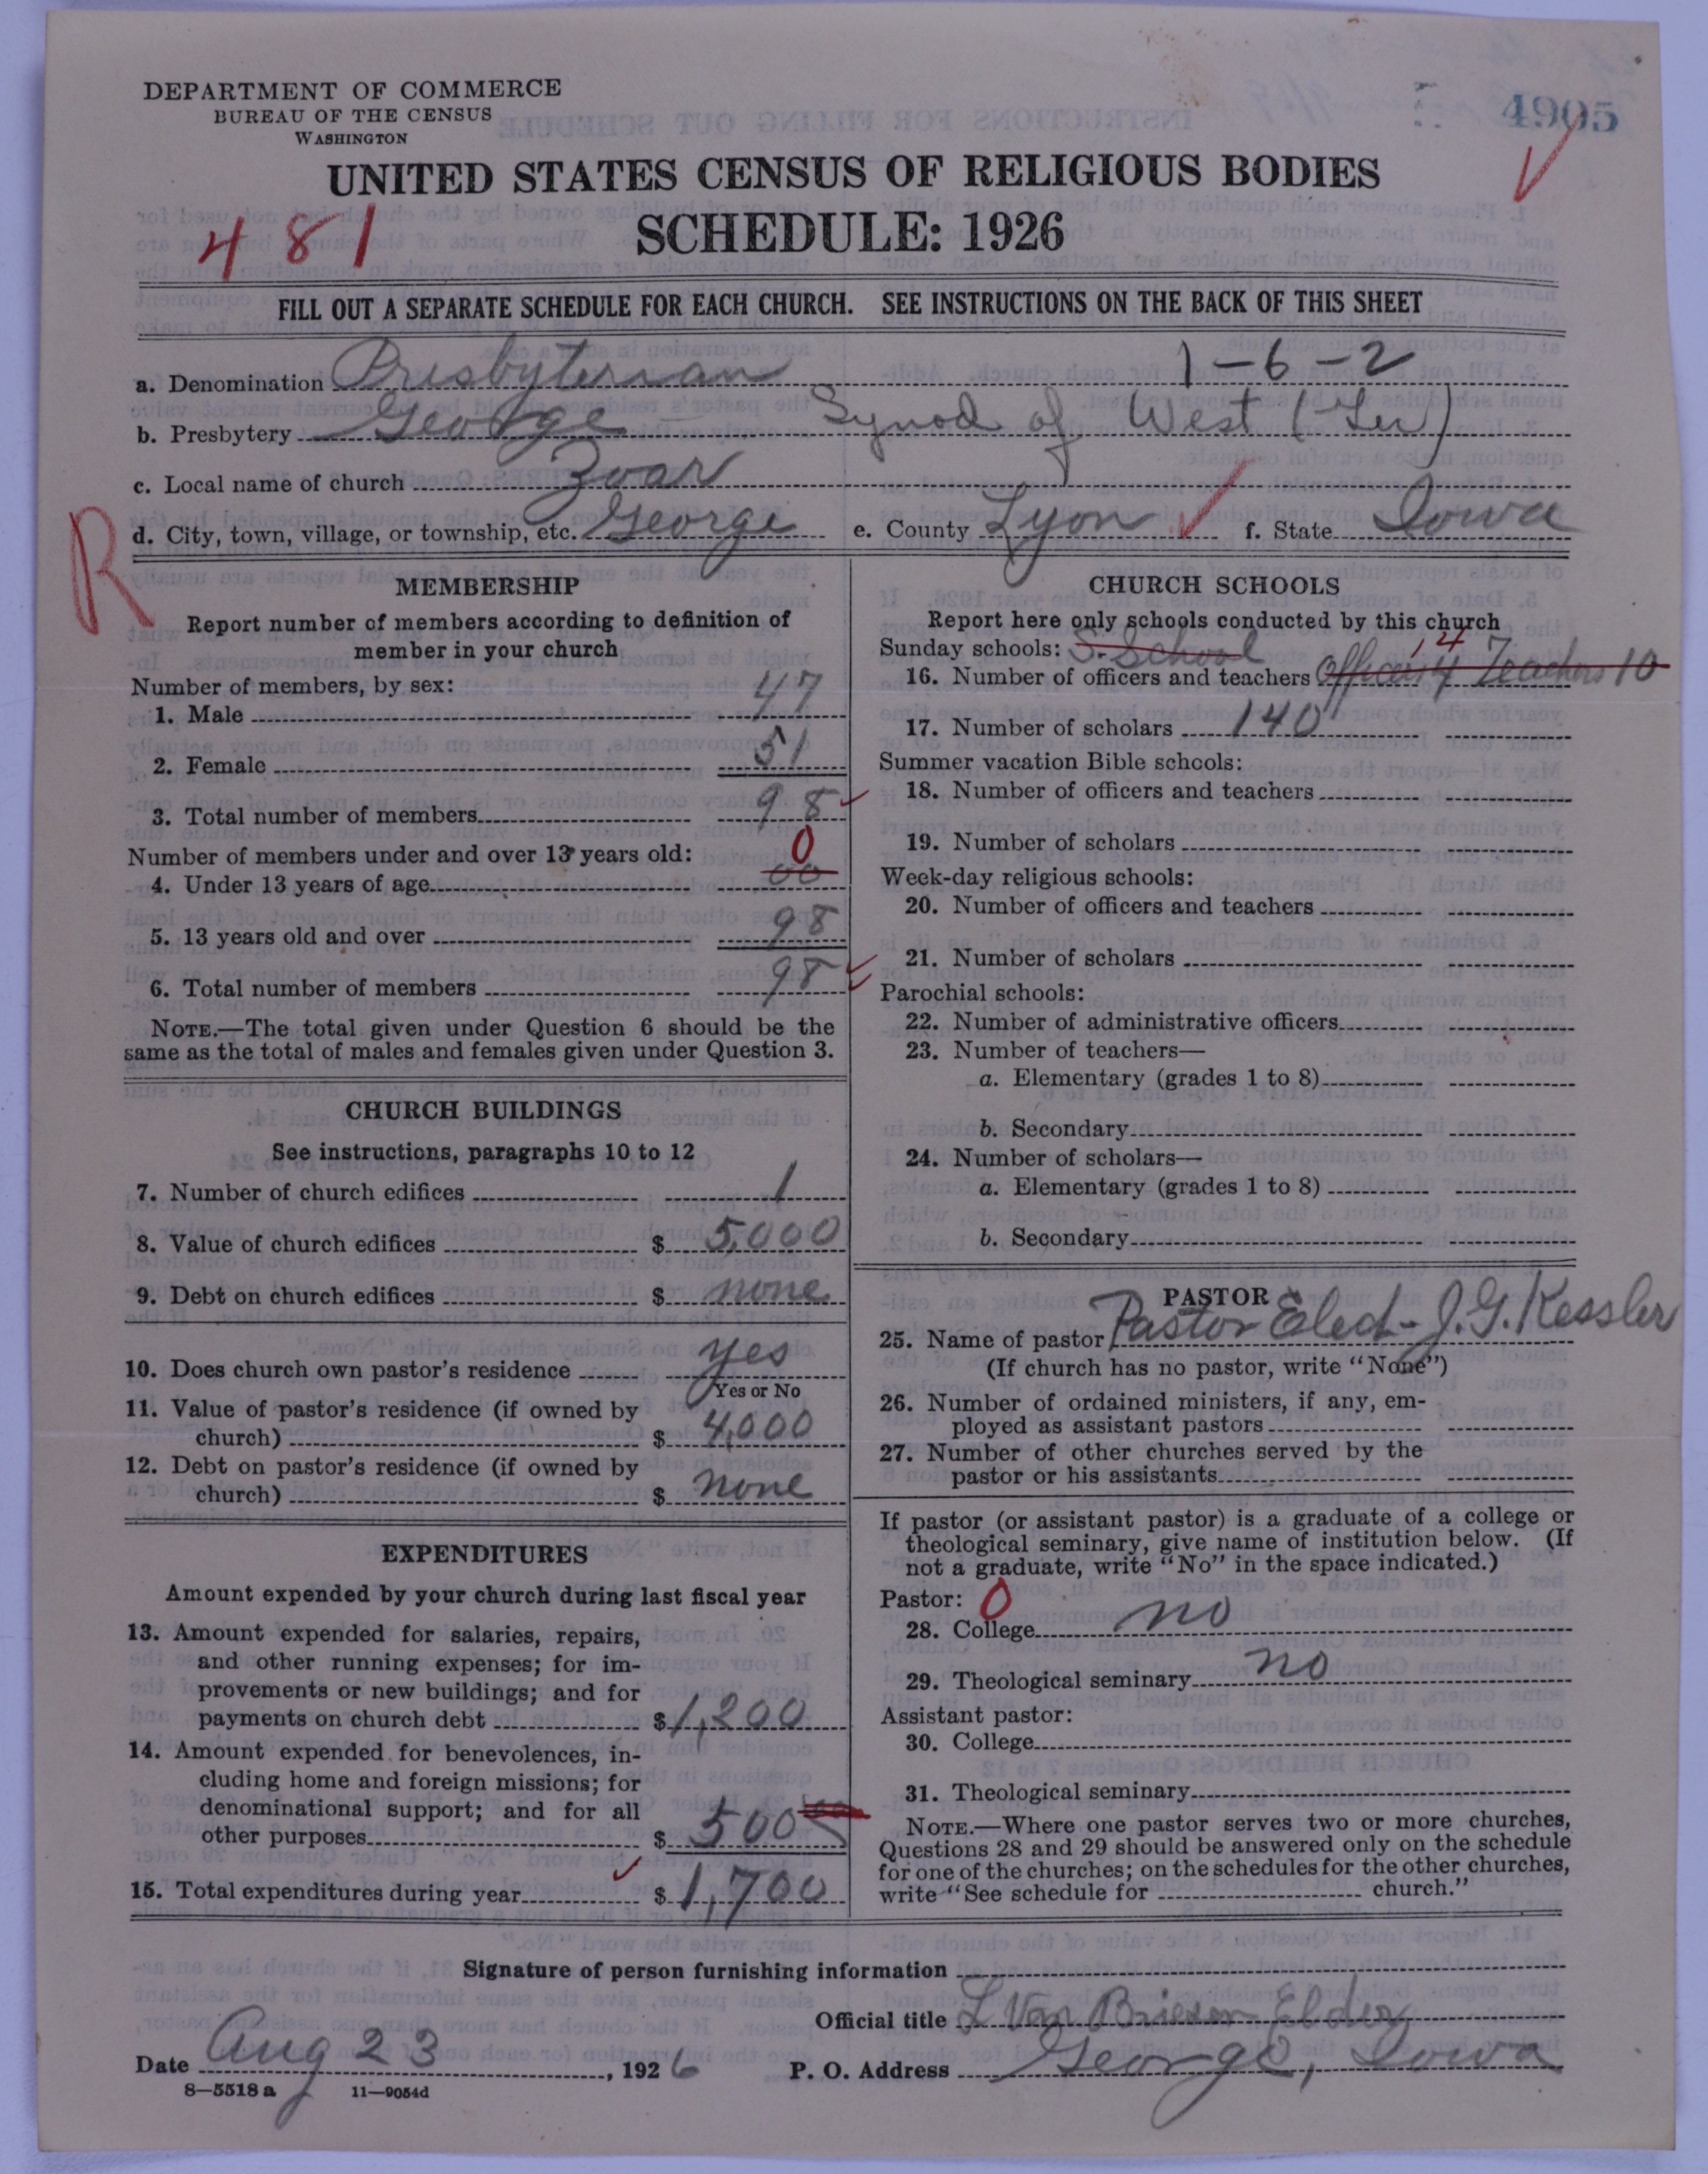 DEPARTMENT OF COMMERCE
BUREAU OF THE CENSUS
WASHINGTON
4905
UNITED STATES CENSUS OF RELIGIOUS BODIES
SCHEDULE: 1926
481
FILL OUT A SEPARATE SCHEDULE FOR EACH CHURCH. SEE INSTRUCTIONS ON THE BACK OF THIS SHEET
a. Denomination Presbyterian 1-6-2
b. Presbytery George Synod of West (Ger)
c. Local name of church Zoar
d. City, town, village, or township, etc. George e. County Lyon f. State Iowa
R
MEMBERSHIP
Report number of members according to definition of
member in your church
Number of members, by sex:
1. Male 47
2. Female 51
3. Total number of members 98
Number of members under and over 13 years old:
4. Under 13 years of age 00 0
5. 13 years old and over 98
6. Total number of members 98
NOTE.—The total given under Question 6 should be the
same as the total of males and females given under Question 3.
CHURCH BUILDINGS
See instructions, paragraphs 10 to 12
7. Number of church edifices 1
8. Value of church edifices $ 5,000
9. Debt on church edifices $ none
10. Does church own pastor's residence yes
Yes or No
11. Value of pastor's residence (if owned by
church) $ 4,000
12. Debt on pastor's residence (if owned by
church) $ none
EXPENDITURES
Amount expended by your church during last fiscal year
13. Amount expended for salaries, repairs,
and other running expenses; for im-
provements or new buildings; and for
payments on church debt $ 1,200
14. Amount expended for benevolences, in-
cluding home and foreign missions; for
denominational support; and for all
other purposes $ 500
15. Total expenditures during year $ 1,700
CHURCH SCHOOLS
Report here only schools conducted by this church
Sunday schools: S. School 14
16. Number of officers and teachers Officers 4 Teachers 10
17. Number of scholars 140
Summer vacation Bible schools:
18. Number of officers and teachers
19. Number of scholars
Week-day religious schools:
20. Number of officers and teachers
21. Number of scholars
Parochial schools:
22. Number of administrative officers
23. Number of teachers—
a. Elementary (grades 1 to 8)
b. Secondary
24. Number of scholars—
a. Elementary (grades 1 to 8)
b. Secondary
PASTOR
25. Name of pastor Pastor Elect- J. G. Kessler
(If church has no pastor, write "None")
26. Number of ordained ministers, if any, em-
ployed as assistant pastors
27. Number of other churches served by the
pastor or his assistants
If pastor (or assistant pastor) is a graduate of a college or
theological seminary, give name of institution below. (If
not a graduate, write "No" in the space indicated.)
Pastor: 0
28. College no
29. Theological seminary no
Assistant pastor:
30. College
31. Theological seminary
NOTE.—Where one pastor serves two or more churches,
Questions 28 and 29 should be answered only on the schedule
for one of the churches; on the schedules for the other churches,
write "See schedule for church."
Signature of person furnishing information
Official title L Van Briesen Elder
Date Aug 23, 1926 P. O. Address George, Iowa
8—5518a 11—9054d